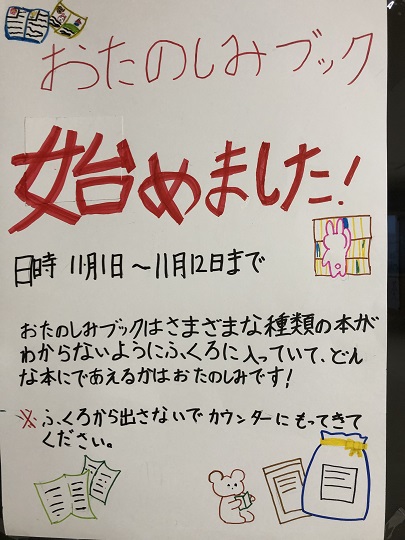 おたのしみブック
始めました!
日時 11月1日～11月12日まで
おたのしみブックはさまざまな種類の本が
わからないようにふくろに入っていて、どん
な本にであえるかはおたのしみです!
※ふくろから出さないでカウンターにもってきて
ください。